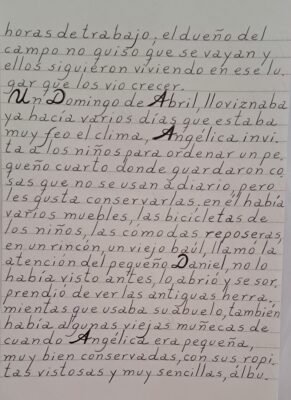 horas de trabajo, el dueño del
campo no quiso que se vayan y
ellos siguieron viviendo en ese lu-
gar que los vio crecer.
Un Domingo de Abril, lloviznaba
ya hacía varios días que estaba
muy feo el clima, Angélica invi-
ta a los niños para ordenar un pe-
queño cuarto donde guardaron co
sas que no se usan a diario, pero
les gusta conservarlas. en el había
varios muebles, las bicicletas de
los niños, las cómodas reposeras,
en un rincón, un viejo baúl, llamó la
atención del pequeño Daniel, no lo
había visto antes, lo abrió y se sor.
prendió de ver las antiguas herra.
mientas que usaba su abuelo, también
había algunas viejas muñecas de
cuando Angélica era pequeña,
muy bien conservadas, con sus ropi-
tas vistosas y muy sencillas, álbu.